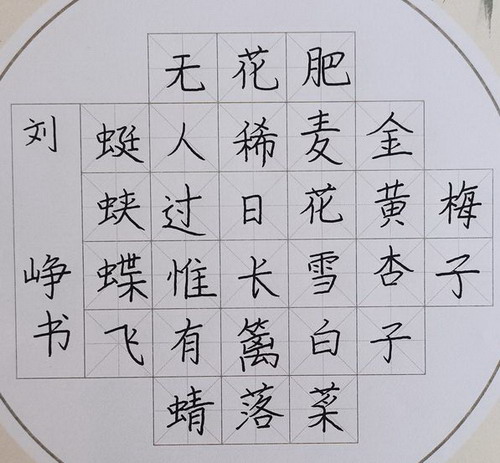 梅子
金黄杏子
肥麦花雪白菜
花稀日长篱落
无人过惟有蜻
蜓蛱蝶飞
刘峥书